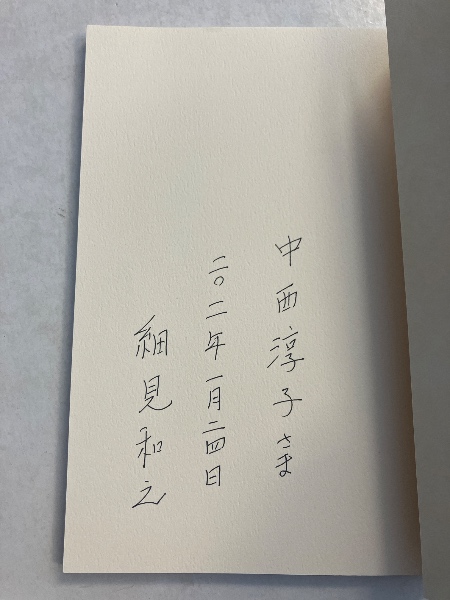 中西淳子さま
二〇二年一月二四日
細見和之